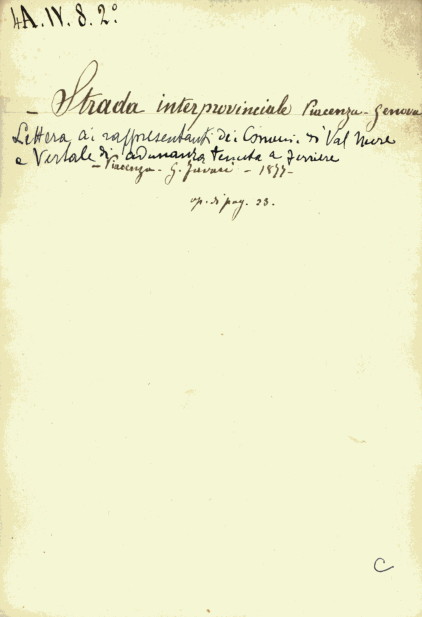 4A.IV.8.2°
- Strada interprovinciale Piacenza-Genova
Lettera ai rappresentanti dei Comuni di Val Nure
e Verbale di adunanza tenuta a Ferriere
- Piacenza - G. - 1877 -
op. di pag. 23.
C